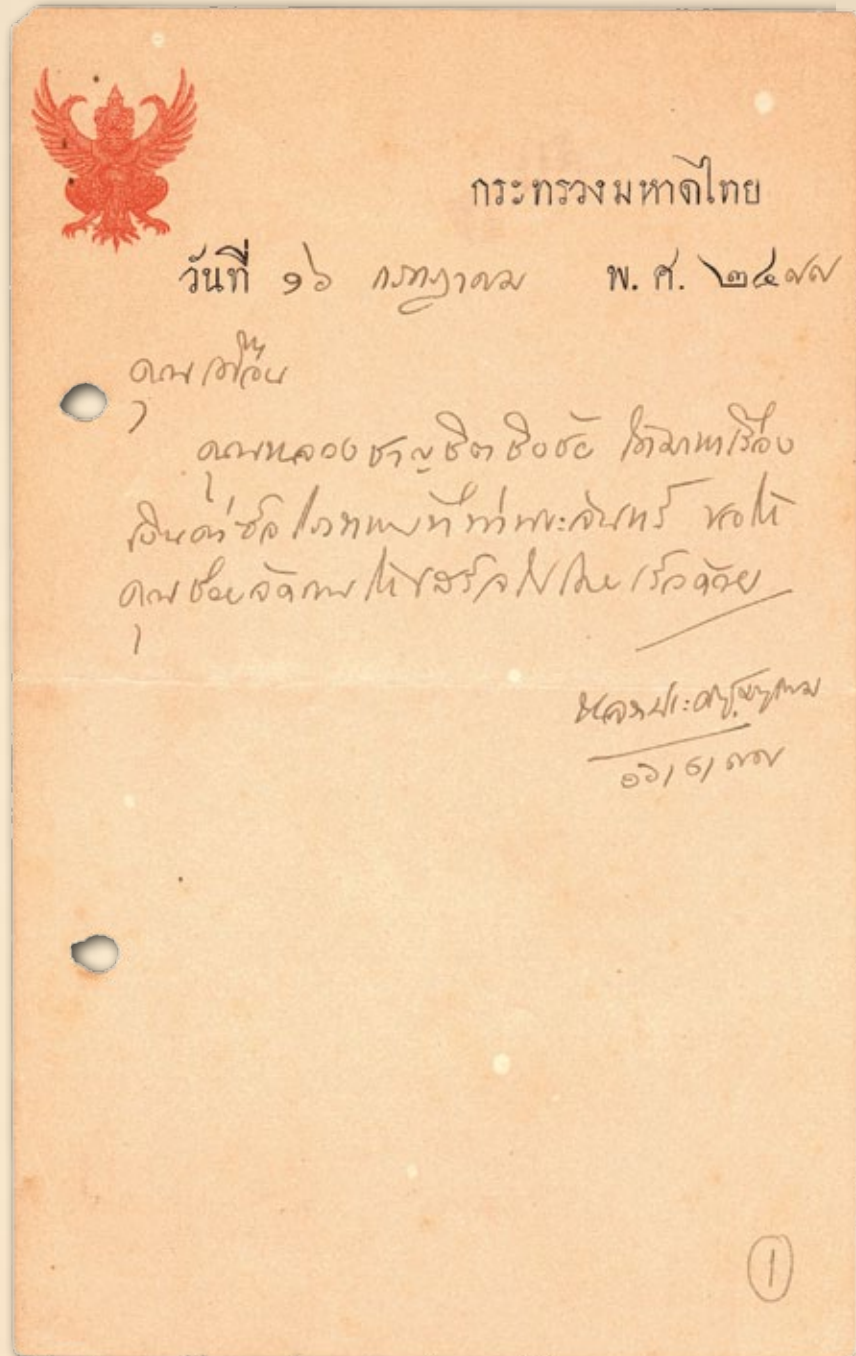 กระทรวงมหาดไทย
วันที่ ๑๖ กรกฎาคม พ. ศ. ๒๔๗๗
คุณเพื่อน
คุณหลวงชาญชิตชิงชัย ได้มาหาเรื่อง
เงินค่าซื้อโรงทหารที่ท่าพระจันทร์ ขอให้
คุณช่วยจัดการให้เสร็จไปโดยเร็วด้วย
หลวงประดิษฐ์มนูธรรม
๑๖/๔/๗๗
1